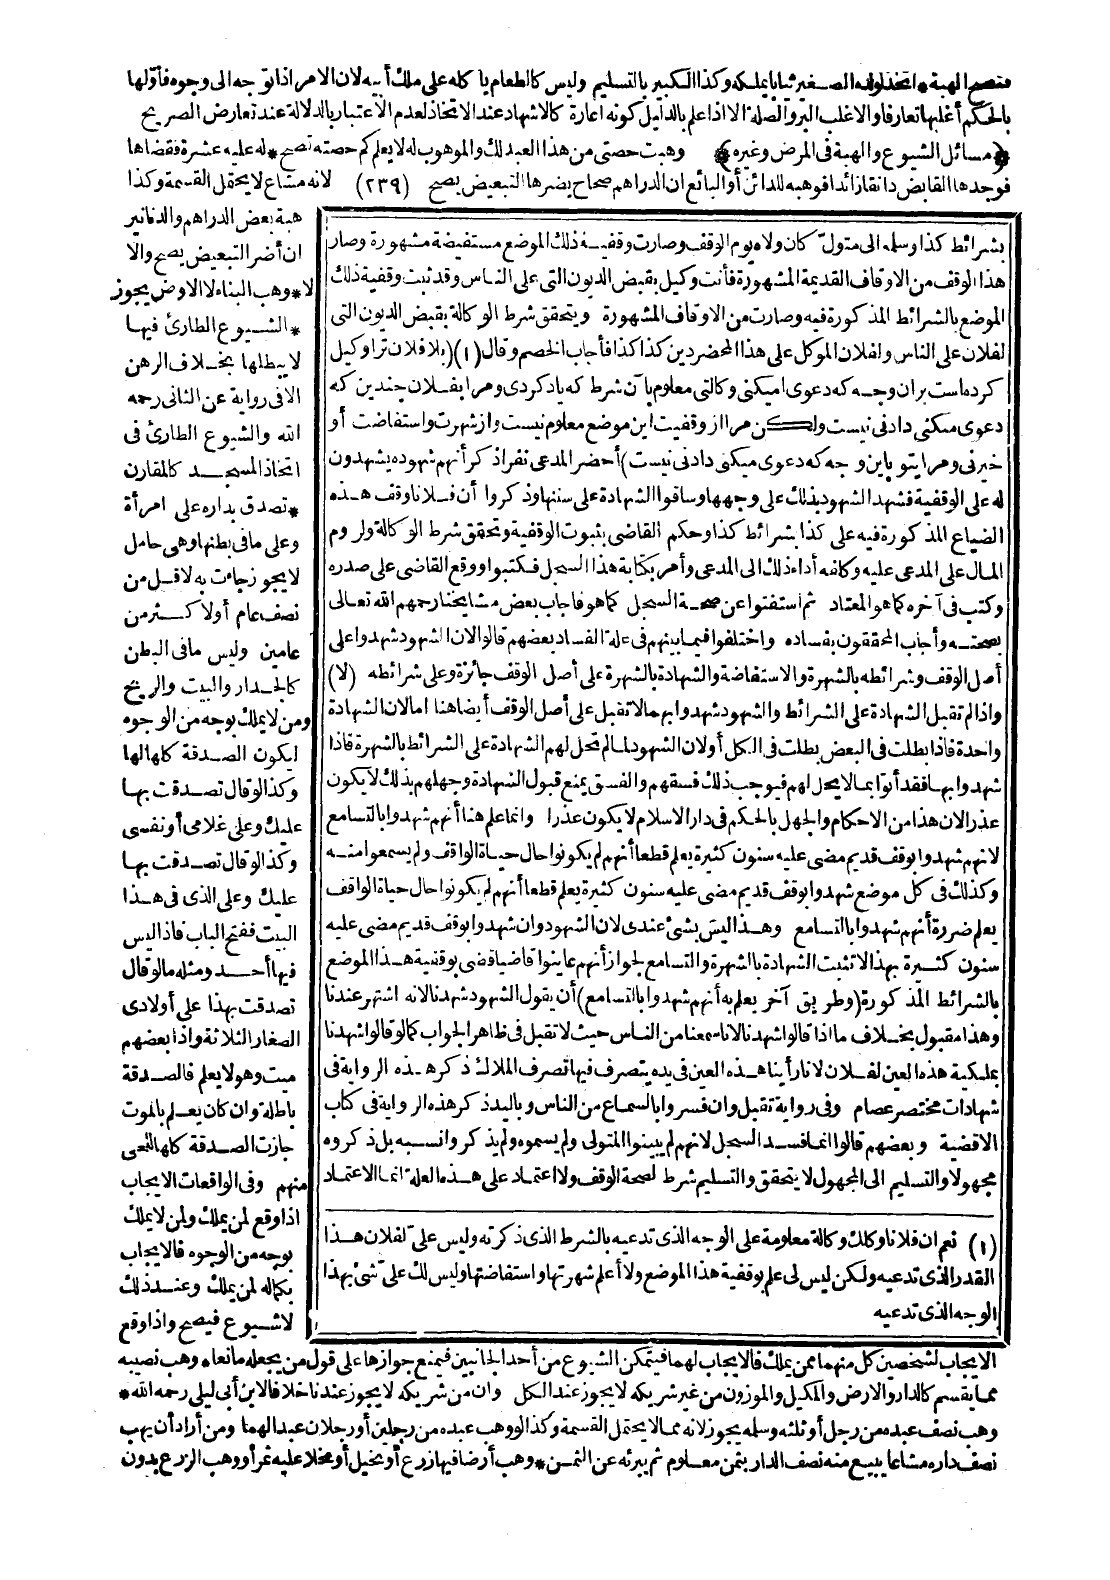 فتصح الهبة * اتخذ لولده الصغير ثيابا يملكه وكذا الكبير بالتسليم وليس كالطعام يأكله على ملك أبيه لان الامر اذا توجه الى وجوه فأولها
بالحكم أغلبها تعارفا والاغلب البر والصلة الا اذا علم بالدليل كونه اعارة كالاشهاد عند الاتخاذ لعدم الاعتبار بالدلالة عند تعارض الصريح
﴿مسائل الشيوع والهبة فى المرض وغيره﴾ وهبت حصتى من هذا العبد لك والموهوب له لا يعلم كم حصته تصح * له عليه عشرة فقضاها
فوجدها القابض دانقا زائدا فوهبه للدائن أو البائع ان الدراهم صحاح يضرها التبعيض يصح (٢٣٩) لانه مشاع لا يحتمل القسمة وكذا
هبة بعض الدراهم والدنانير
ان أضر التبعيض يصح والا
لا * وهب البناء لا الارض يجوز
* الشيوع الطارئ فيها
لا يبطلها بخلاف الرهن
الا فى رواية عن الثانى رحمه
الله والشيوع الطارئ فى
اتخاذ المسجد كالمقارن
* تصدق بداره على امرأة
وعلى مافى بطنها وهى حامل
لا يجوز جاءت به لاقل من
نصف عام أو لاكثر من
عامين وليس مافى البطن
كالجدار والبيت والريح
ومن لا يملك بوجه من الوجوه
ليكون الصدقة كلها لها
وكذا لو قال تصدقت بها
عليك وعلى غلامى أو نفسى
وكذا لو قال تصدقت بها
عليك وعلى الذى فى هذا
البيت ففتح الباب فاذا ليس
فيها أحد ومثله مالو قال
تصدقت بهذا على أولادى
الصغار الثلاثة واذا بعضهم
ميت وهو لا يعلم فالصدقة
باطلة وان كان يعلم بالموت
جازت الصدقة كلها للحى
منهم وفى الواقعات الايجاب
اذا وقع لمن يملك ولمن لا يملك
بوجه من الوجوه فالايجاب
بكماله لمن يملك وعند ذلك
لا شيوع فيصح واذا وقع
بشرائط كذا وسلمه الى متول كان ولاه يوم الوقف وصارت وقفية ذلك الموضع مستفيضة مشهورة وصار
هذا الوقف من الاوقاف القديمة المشهورة فأنت وكيل بقبض الديون التى على الناس وقد ثبت وقفية ذلك
الموضع بالشرائط المذكورة فيه وصارت من الاوقاف المشهورة ويتحقق شرط الوكالة بقبض الديون التى
لفلان على الناس ولفلان الموكل على هذا المحضر دين كذا كذا فأجاب الخصم وقال (١) (بلا فلان تراوكيل
كرده است بران وجه كه دعوى ميكنى وكالتى معلوم با آن شرط كه ياد كردى ومرا بفلان چندين كه
دعوى ميكنى دادنى نيست وليكن مرا از وقفيت اين موضع معلوم نيست واز شهرت واستفاضت أو
خبرنى ومرا بتو باين وجه كه دعوى ميكنى دادنى نيست) أحضر المدعى نفرا ذكر أنهم شهوده يشهدون
له على الوقفية فشهد الشهود بذلك على وجهها وساقوا الشهادة على سننها وذكروا أن فلانا وقف هذه
الضياع المذكورة فيه على كذا بشرائط كذا وحكم القاضى بثبوت الوقفية وتحقق شرط الوكالة ولزوم
المال على المدعى عليه وكلفه أداء ذلك الى المدعى وأمر بكتابة هذا السجل فكتبوا ووقع القاضى على صدره
وكتب فى آخره كما هو المعتاد ثم استفتوا عن صحة السجل كما هو فاجاب بعض مشايخنا رحمهم الله تعالى
بصحته وأجاب المحققون بفساده واختلفوا فيما بينهم فى علة الفساد بعضهم قالوا لان الشهود شهدوا على
أصل الوقف وشرائطه بالشهرة والاستفاضة والشهادة بالشهرة على أصل الوقف جائزة وعلى شرائطه (لا)
واذا لم تقبل الشهادة على الشرائط والشهود شهدوا بهما لا تقبل على أصل الوقف أيضا هنا امالان الشهادة
واحدة فاذا بطلت فى البعض بطلت فى الكل أو لان الشهود لما لم تحل لهم الشهادة على الشرائط بالشهرة فاذا
شهدوا بها فقد أتوا بما لا يحل لهم فيوجب ذلك فسقهم والفسق يمنع قبول الشهادة وجهلهم بذلك لا يكون
عذرا لان هذا من الاحكام والجهل بالحكم فى دار الاسلام لا يكون عذرا وانما علم هنا أنهم شهدوا بالتسامع
لانهم شهدوا بوقف قديم مضى عليه سنون كثيرة يعلم قطعا أنهم لم يكونوا حال حياة الواقف ولم يسمعوا منه
وكذلك فى كل موضع شهدوا بوقف قديم مضى عليه سنون كثيرة يعلم قطعا أنهم لم يكونوا حال حياة الواقف
يعلم ضرورة أنهم شهدوا بالتسامع وهذا ليس بشئ عندى لان الشهود وان شهدوا بوقف قديم مضى عليه
سنون كثيرة بهذا لا تثبت الشهادة بالشهرة والتسامع لجواز أنهم عاينوا قاضيا قضى بوقفية هذا الموضع
بالشرائط المذكورة (وطريق آخر يعلم به أنهم شهدوا بالتسامع) أن يقول الشهود شهدنا لانه اشتهر عندنا
وهذا مقبول بخلاف ما اذا قالوا شهدنا لانا سمعنا من الناس حيث لا تقبل فى ظاهر الجواب كما لو قالوا شهدنا
بملكية هذه العين لفلان لانا رأينا هذه العين فى يده يتصرف فيها تصرف الملاك ذكر هذه الرواية فى
شهادات مختصر عصام وفى رواية تقبل وان فسروا بالسماع من الناس وباليد ذكر هذه الرواية فى كتاب
الاقضية وبعضهم قالوا انما فسد السجل لانهم لم يبينوا المتولى ولم يسموه ولم يذكروا نسبه بل ذكروه
مجهولا والتسليم الى المجهول لا يتحقق والتسليم شرط لصحة الوقف ولا اعتماد على هذه العلة انما الاعتماد
(١) نعم ان فلانا وكلك وكالة معلومة على الوجه الذى تدعيه بالشرط الذى ذكرته وليس على لفلان هذا
القدر الذى تدعيه ولكن ليس لى علم بوقفية هذا الموضع ولا أعلم شهرتها واستفاضتها وليس لك على شئ بهذا
الوجه الذى تدعيه
الايجاب لشخصين كل منهما ممن يملك فالايجاب لهما فيتمكن الشيوع من أحد الجانبين فيمنع جوازها على قول من يجعله مانعا * وهب نصيبه
مما يقسم كالدار والارض والمكيل والموزون من غير شريكه لا يجوز عند الكل وان من شريكه لا يجوز عندنا خلافا لابن أبى ليلى رحمه الله *
وهب نصف عبده من رجل أو ثلثه وسلمه يجوز لانه مما لا يحتمل القسمة وكذا لو وهب عبده من رجلين أو رجلان عبدا لهما ومن أراد أن يهب
نصف داره مشاعا يبيع منه نصف الدار بثمن معلوم ثم يبرئه عن الثمن * وهب أرضا فيها زرع أو نخيل أو نخلا عليه ثمر أو وهب الزرع بدون